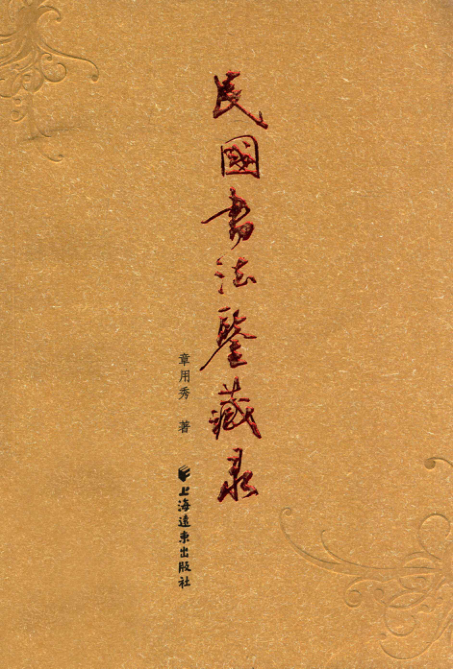 民國書法鑒藏录
章用秀 著
上海遠東出版社